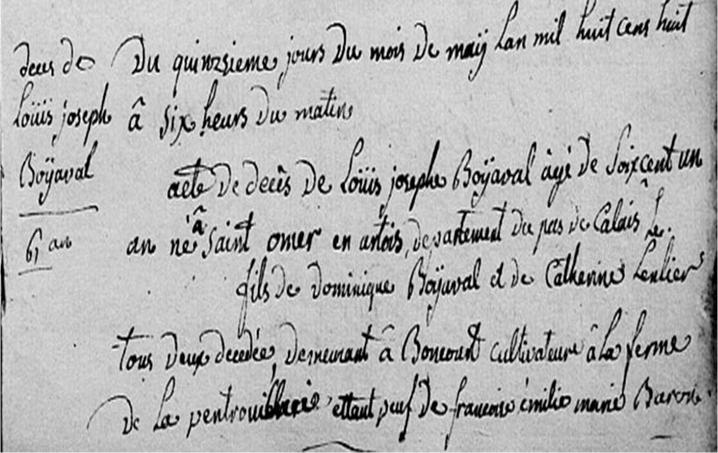 deces de
Loüis joseph
Boÿaval
61 an
Du quinzsieme jours du mois de maÿ Lan mil huit cens huit
â six heurs du matin
acte de decês de Loüis josephe Boÿaval âgé de Soixcent un
an né â Saint omer en artois, departement du pas de Calais â Le
fils de Dominique Boÿaval et de Catherine Lenliers
tous deux decedée, demeurant â Boncourt cultivateur â La ferme
De La pentrouillerie ettant veuf de francoise émilie marie Baron